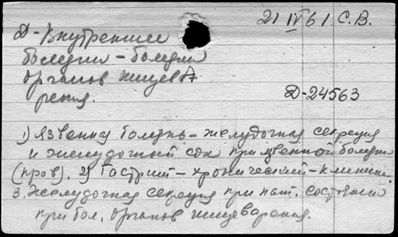 21 IV 61. С.В.
Д-Внутренние
болезни - болезни
органов пищева
рения.
Д-24563
1) Язвенна болезнь - желудочная секреция
и желудочный сок при язвенной болезни
(пров). 2) Гастрит - хронический - клиник.
3. Желудочная секреция при пат. состояний
при бол. органов пищеварения.